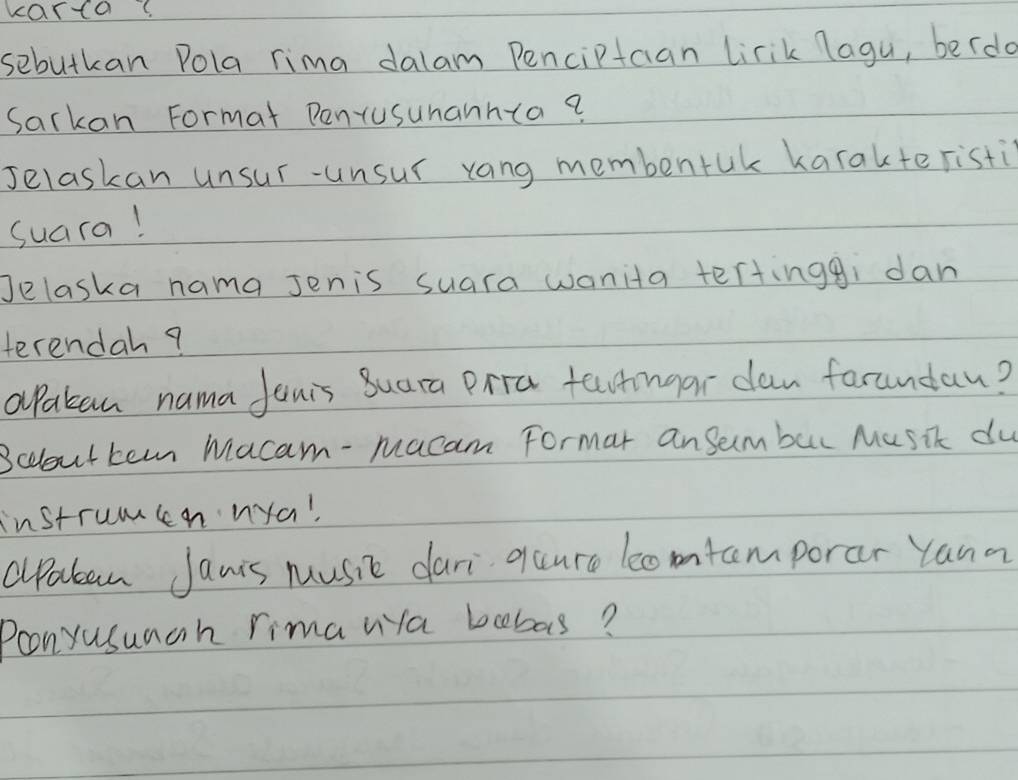 karya ?
sebutkan Pola rima dalam Penciptaan lirik lagu, berda
sarkan Format Penyusunannya ?
Jelaskan unsur-unsur yang membentuk karakteristi
suara !
Jelaska nama Jenis suara wanita tertinggi dan
terendah ?
apakan nama Jenis Suara Pria tertinggi dan
Sebutkan Macam-macam Format ansambel Musik
instrumennya!
apakan Janis musik dari genre kontamporer Yann
Penyusunan rimanya bebas ?